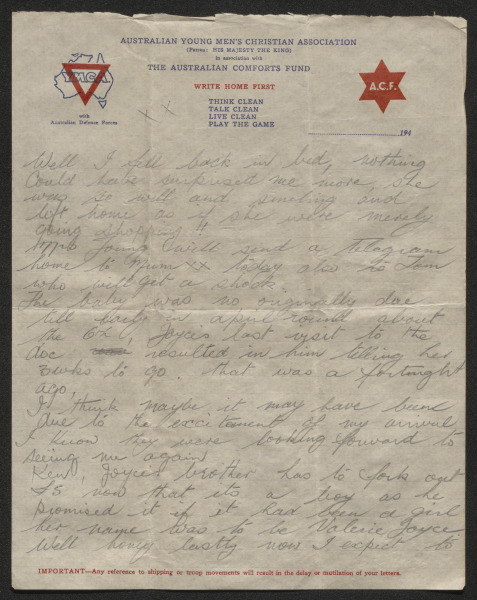 AUSTRALIAN YOUNG MEN'S CHRISTIAN ASSOCIATION
(Patron: HIS MAJESTY THE KING)
in association with
THE AUSTRALIAN COMFORTS FUND
YMCA
with
Australian Defence Forces
A.C.F.
WRITE HOME FIRST
THINK CLEAN
TALK CLEAN
LIVE CLEAN
PLAY THE GAME
194
x x
Well I fell back in bed, nothing
Could have surprised me more, she
was so well and smiling and
left home as if she were merely
going shopping.
Young will send a Telegram
home to Mum xx today also to Tom
who will get a shock.
The baby was no originally due
till early in april round about
the 6th, Joyces last visit to the
doc resulted in him telling her
3wks to go. that was a fortnight
ago.
I think maybe it may have been
due to the excitement of my arrival
I know they were looking forward to
seeing me again
Ken, Joyces brother has to fork out
£5 now that its a boy as he
promised it if it had been a girl
her name was to be Valerie Joyce
Well honey lastly now I expect to
IMPORTANT—Any reference to shipping or troop movements will result in the delay or mutilation of your letters.